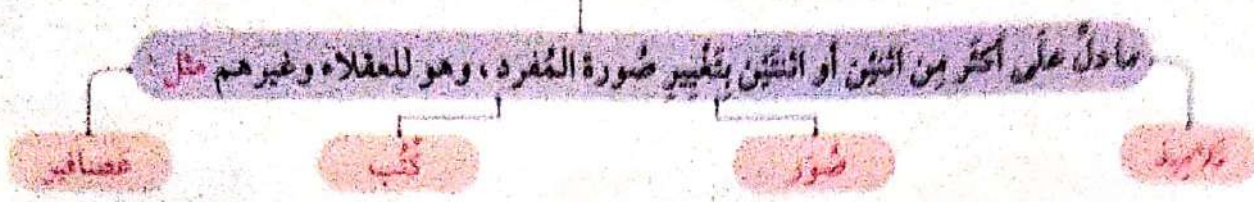 ما دلَّ علَى أكثَر مِن اثنَيْن أو اثنتَيْن بِتَغْيِيرِ صُورة المُفرد، وهو للعقلاء وغيرهم مثل:
صُوَر كُتُب عصافير